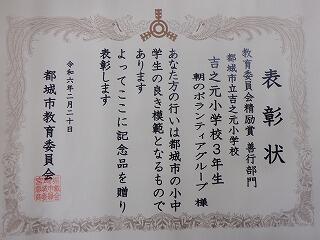 表彰状
教育委員会精励賞 善行部門
都城市立吉之元小学校
吉之元小学校3年生
朝のボランティアグループ 様
あなた方の行いは都城市の小中
学生の良き模範となるもので
あります
よってここに記念品を贈り
表彰します
令和六年二月二十日
都城市教育委員会